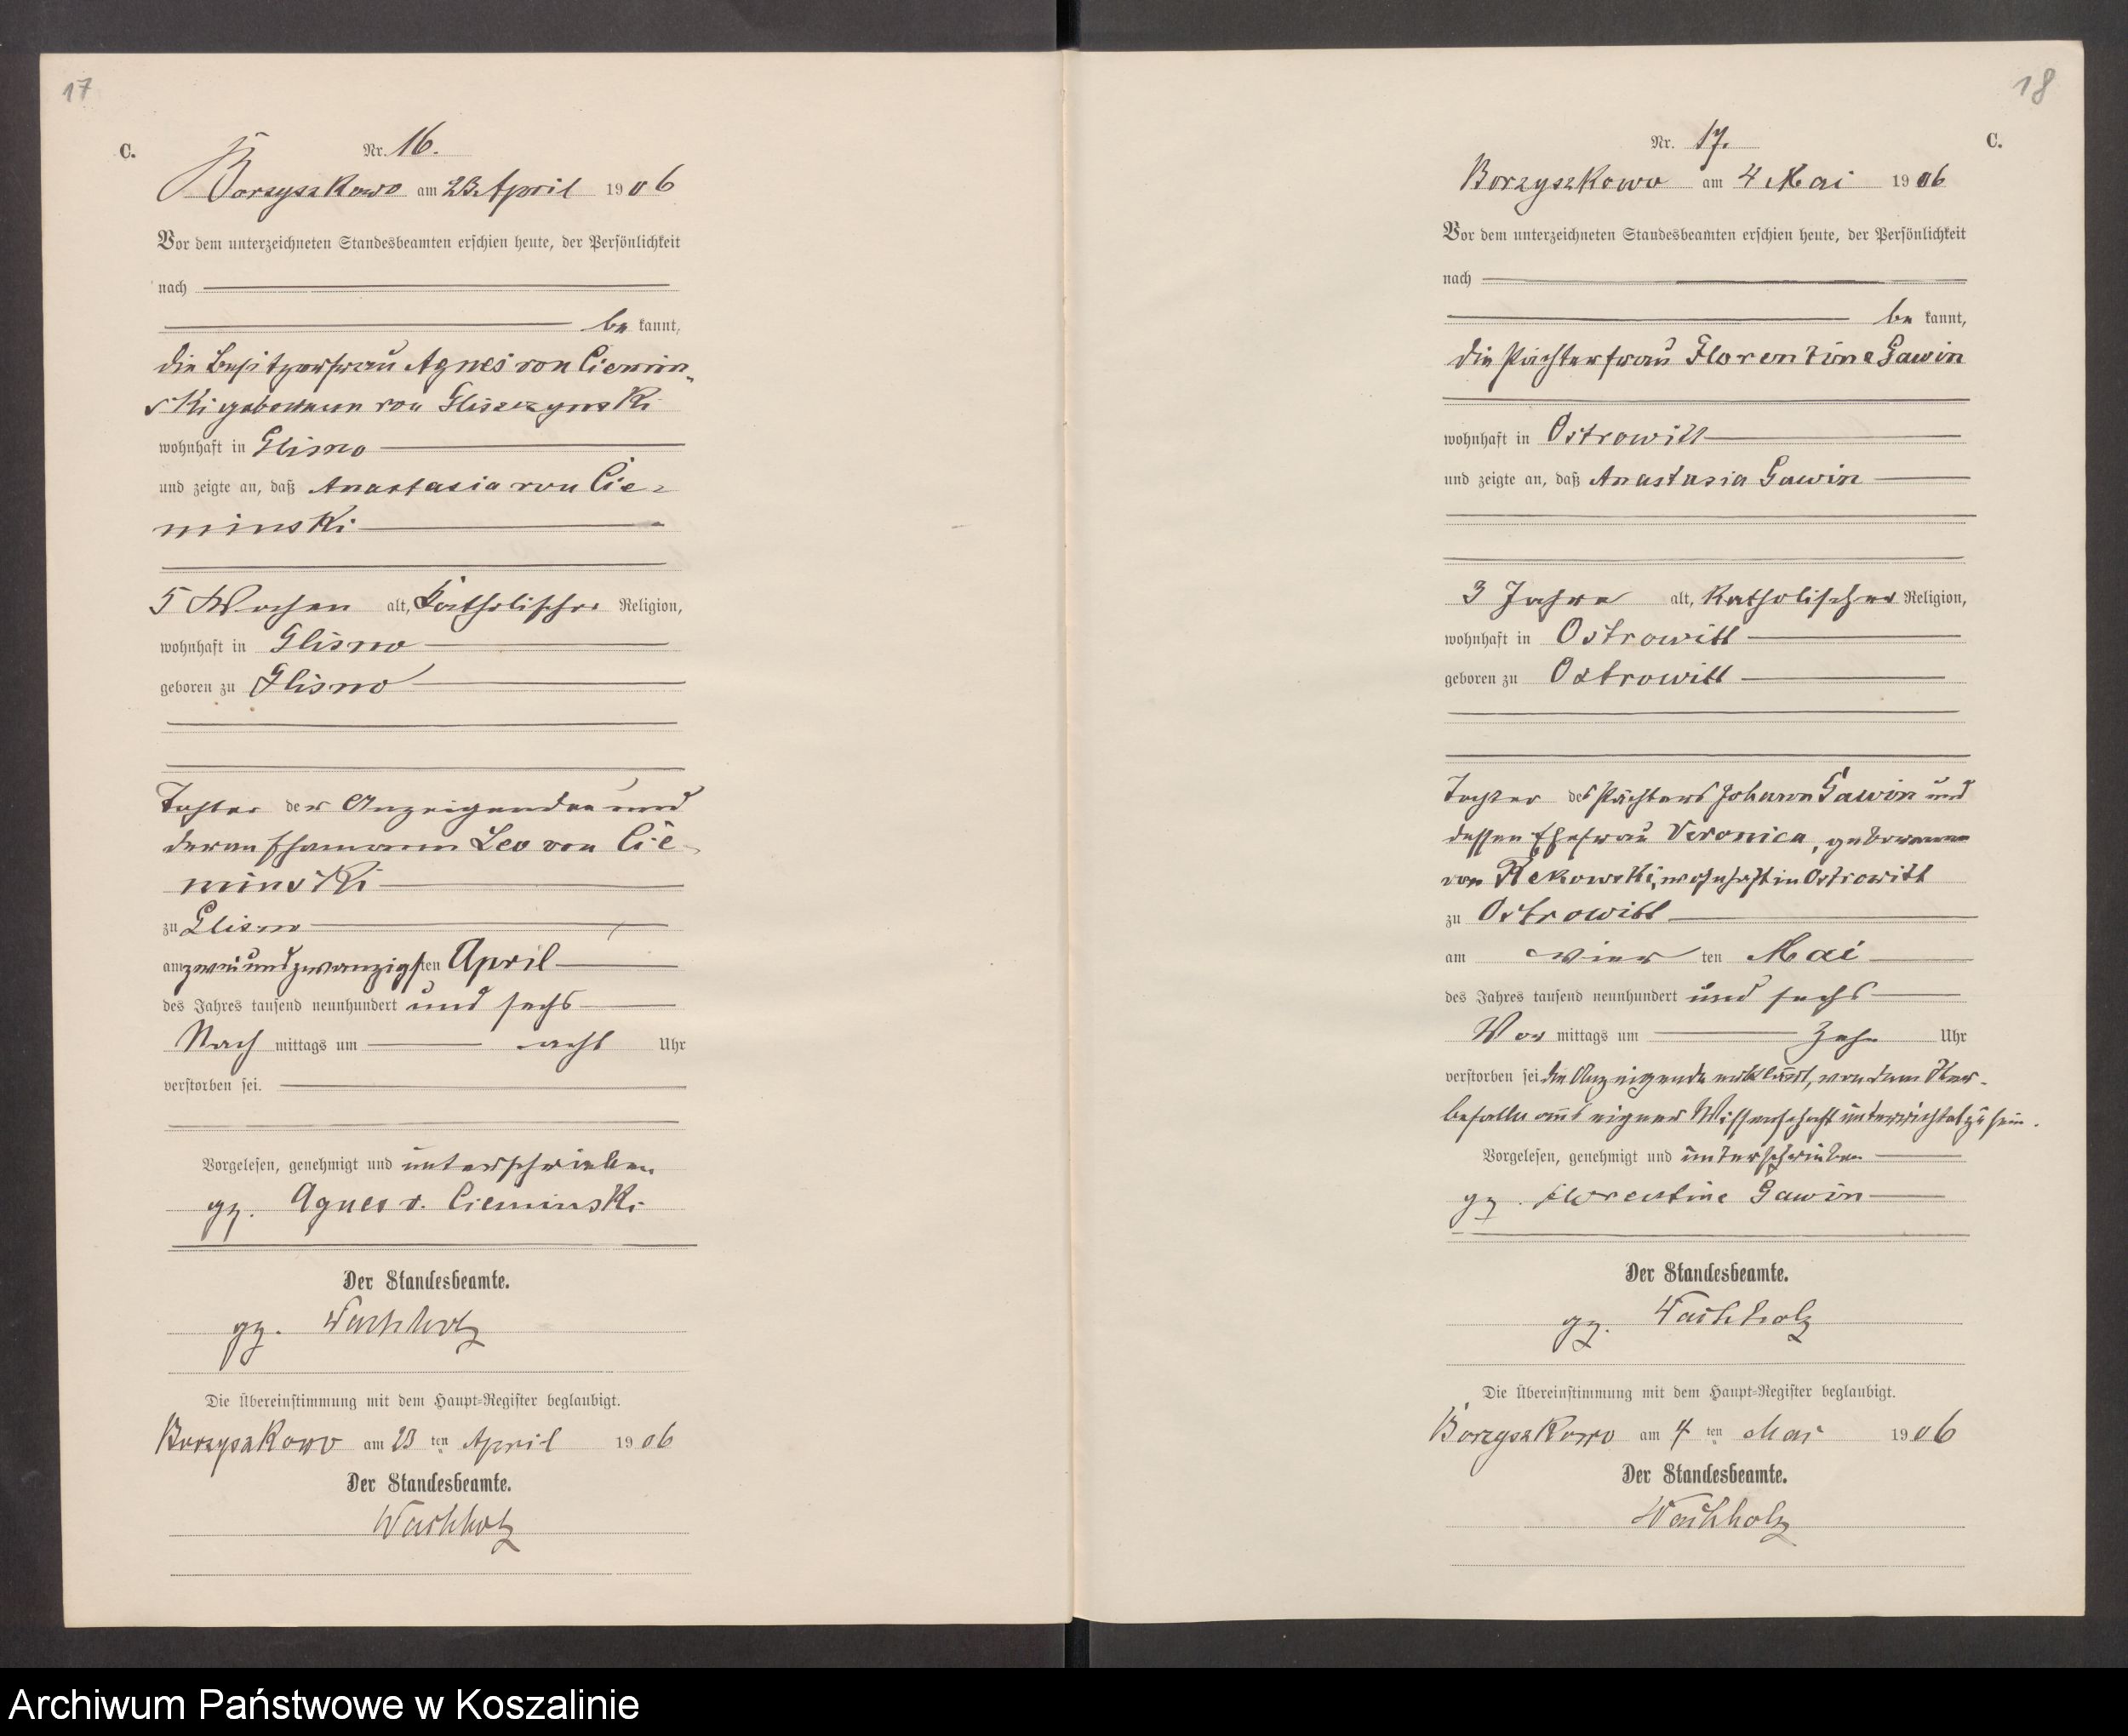 17
C.
Nr. 16.
Borzyszkowo am 23. April 1906
Vor dem unterzeichneten Standesbeamten erschien heute, der Persönlichkeit
nach
be kannt,
die Besitzerfrau Agnes von Ciemin-
ski geborenen von Gliszczynski
wohnhaft in Glisno
und zeigte an, daß Anastasia von Cie-
minski
5 Wochen alt, katholischer Religion,
wohnhaft in Glisno
geboren zu Glisno
Tochter der Anzeigenden und
deren Ehemann Leo von Cie-
minski
zu Glisno
am zweiundzwanzigsten April
des Jahres tausend neunhundert und sechs
Nach mittags um acht Uhr
verstorben sei.
Vorgelesen, genehmigt und unterschrieben
gz. Agnes v. Cieminski
Der Standesbeamte.
gz. Wachholz
Die Übereinstimmung mit dem Haupt-Register beglaubigt.
Borzyszkowo am 23 ten April 1906
Der Standesbeamte.
Wachholz
18
C.
Nr. 17.
Borzyszkowo am 4 Mai 1906
Vor dem unterzeichneten Standesbeamten erschien heute, der Persönlichkeit
nach
be kannt,
die Pächterfrau Florentine Gawin
wohnhaft in Ostrowitt
und zeigte an, daß Anastasia Gawin
3 Jahre alt, katholischer Religion,
wohnhaft in Ostrowitt
geboren zu Ostrowitt
Tochter des Pächters Johann Gawin und
dessen Ehefrau Veronica, geborenen
von Rekowski, wohnhaft in Ostrowitt
zu Ostrowitt
am vier ten Mai
des Jahres tausend neunhundert und sechs
Vor mittags um zehn Uhr
verstorben sei die Anzeigende erklärt, von dem Ster-
befalle aus eigner Wissenschaft unterrichtet zu sein.
Vorgelesen, genehmigt und unterschrieben
gz. Florentine Gawin
Der Standesbeamte.
gz. Wachholz
Die Übereinstimmung mit dem Haupt-Register beglaubigt.
Borzyszkowo am 4 ten Mai 1906
Der Standesbeamte.
Wachholz
Archiwum Państwowe w Koszalinie